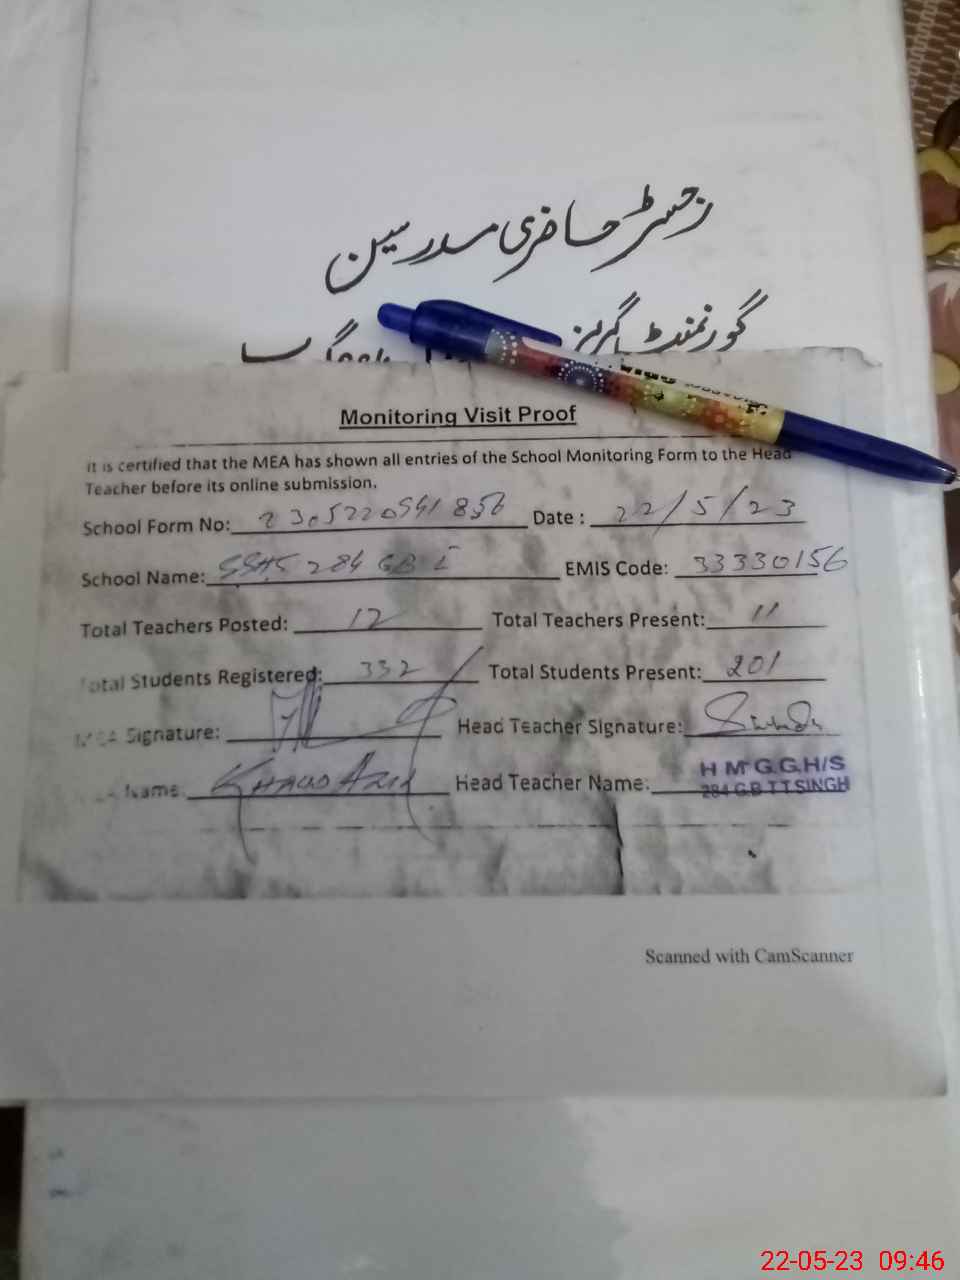 رجسٹر حاضری مدرسین
گورنمنٹ گرلز
Monitoring Visit Proof
It is certified that the MEA has shown all entries of the School Monitoring Form to the Head
Teacher before its online submission.
School Form No: 2305220941856 Date : 22/5/23
School Name: GGHS 284 GB I EMIS Code: 33330156
Total Teachers Posted: 12 Total Teachers Present: 11
Total Students Registered: 332 Total Students Present: 201
MEA Signature: Head Teacher Signature:
MEA Name: KHALID AZIZ Head Teacher Name: H M G.G.H/S
284 G.B T.T.SINGH
Scanned with CamScanner
22-05-23 09:46